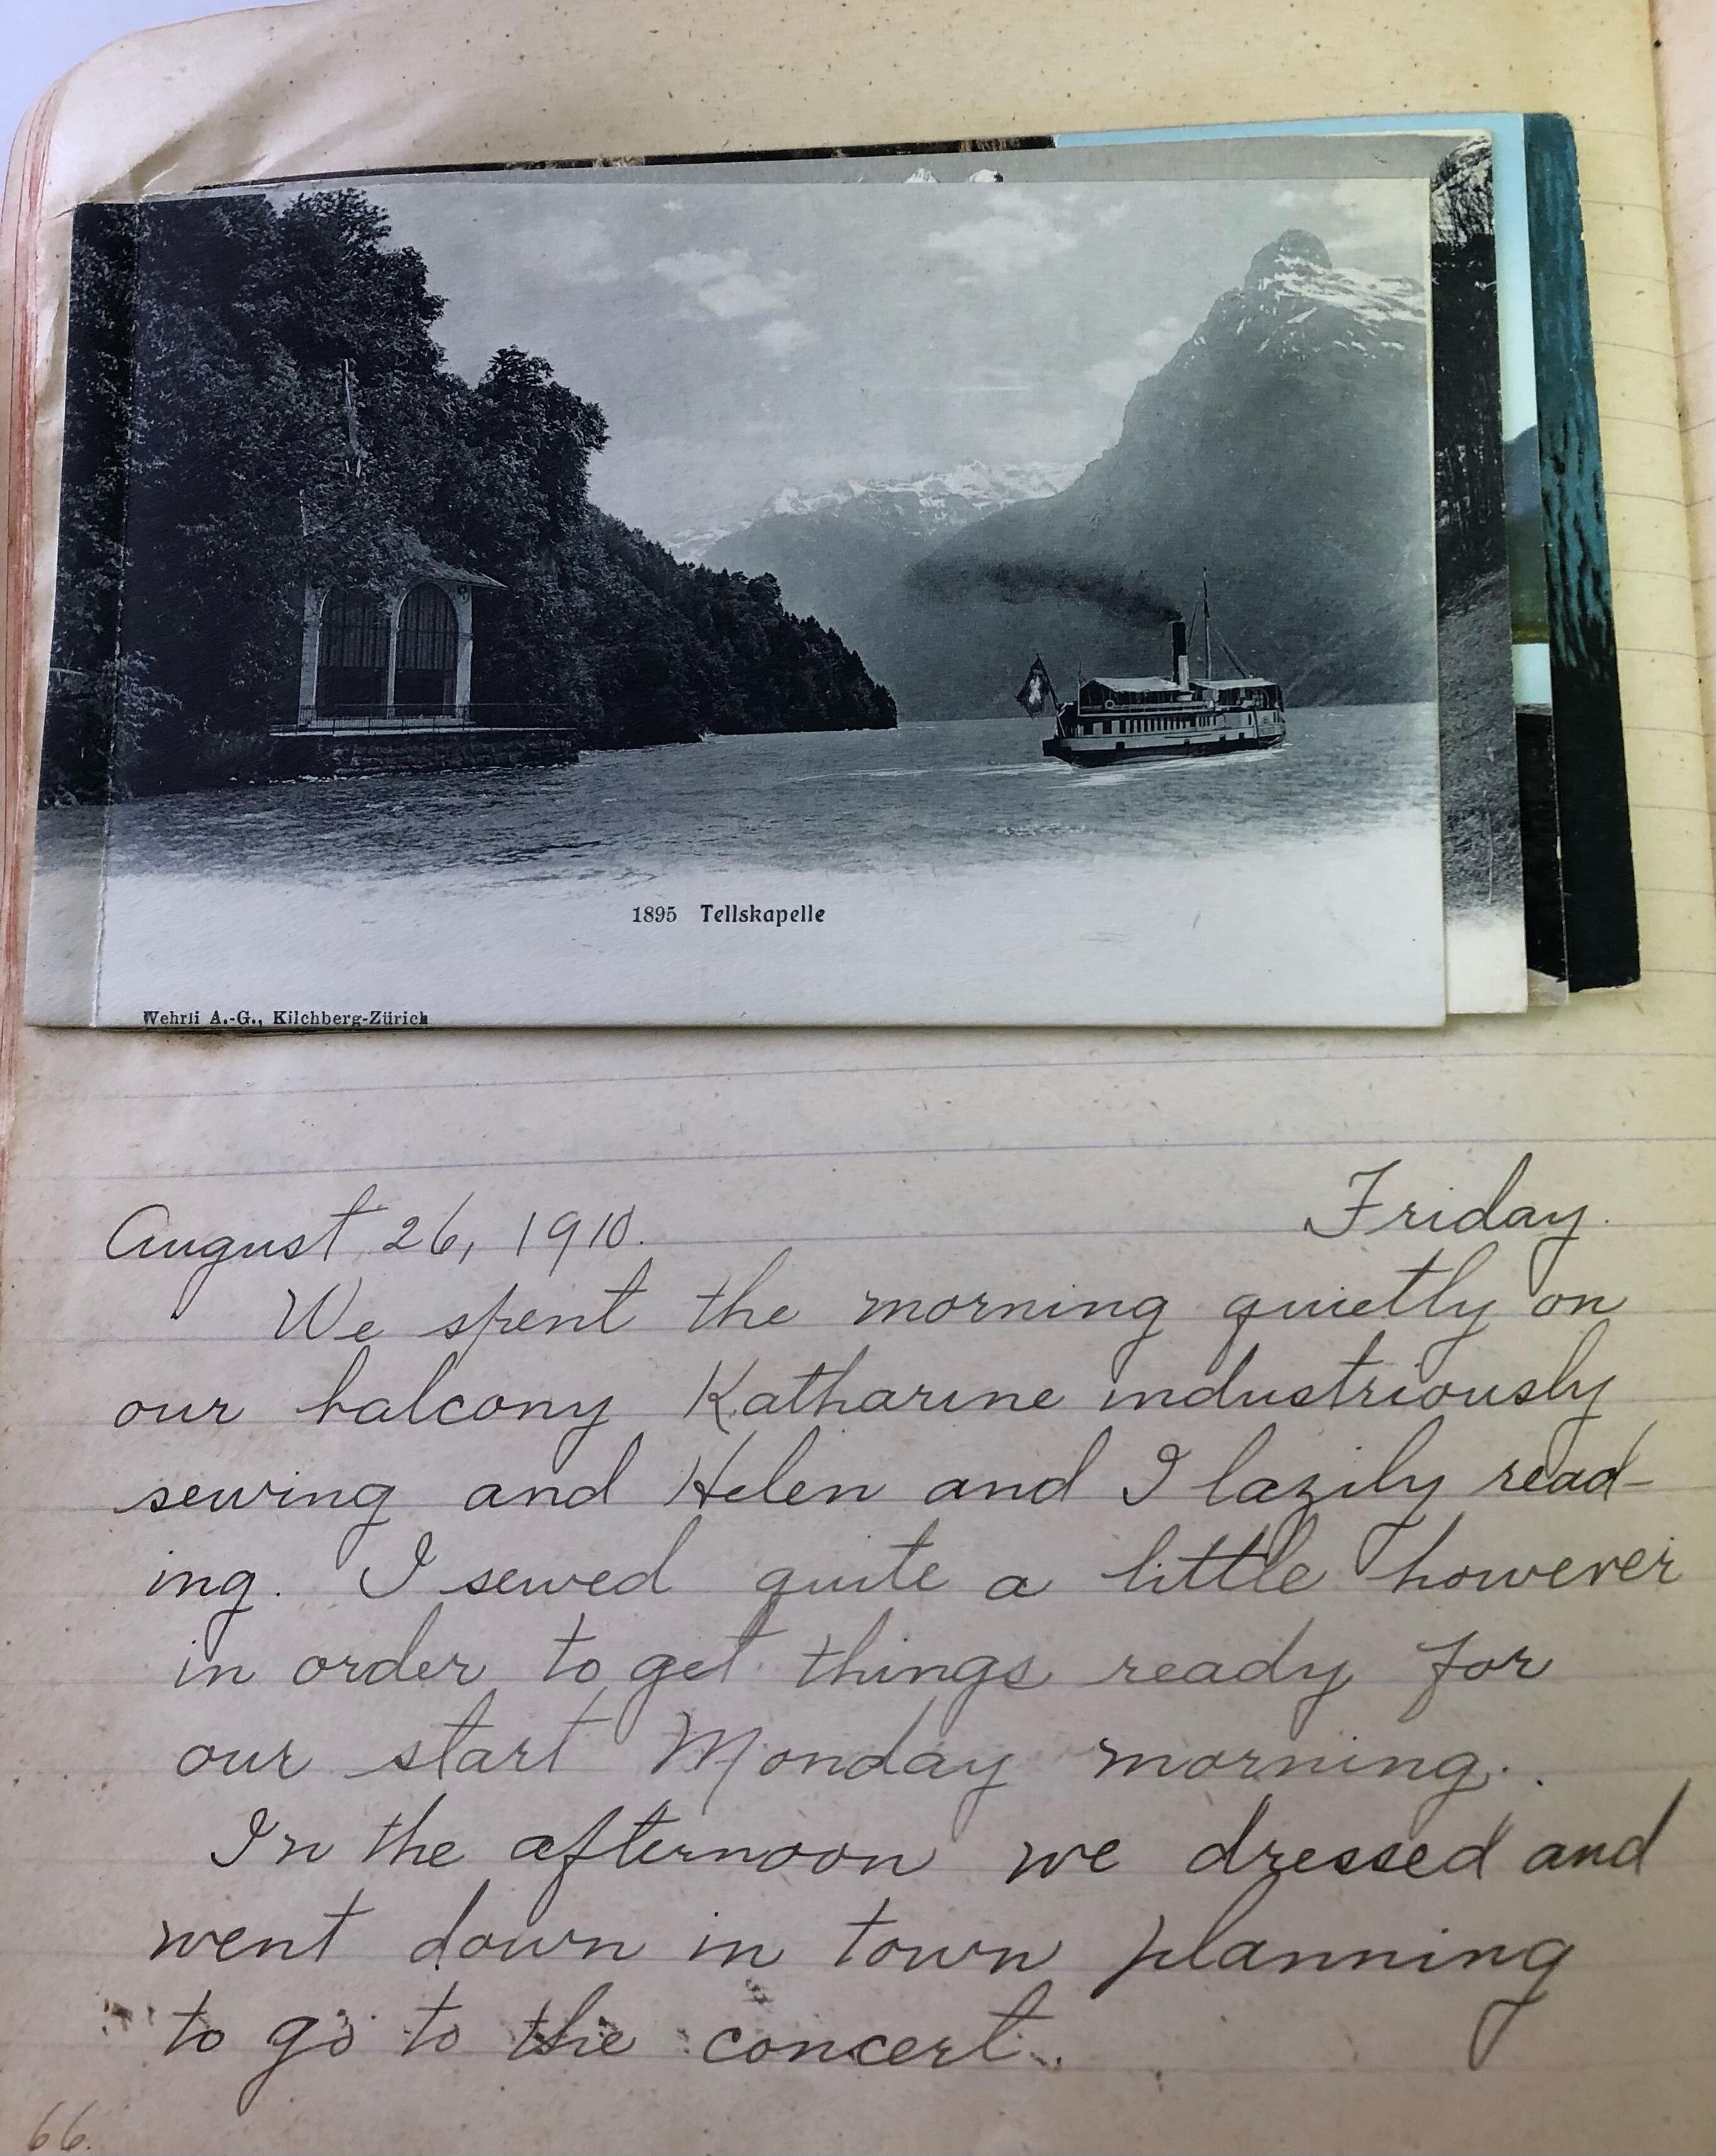 1895 Tellskapelle
Wehrli A.-G., Kilchberg-Zürich
August 26, 1910. Friday.
We spent the morning quietly on
our balcony Katharine industriously
sewing and Helen and I lazily read-
ing. I sewed quite a little however
in order to get things ready for
our start Monday morning.
In the afternoon we dressed and
went down in town planning
to go to the concert.
66.